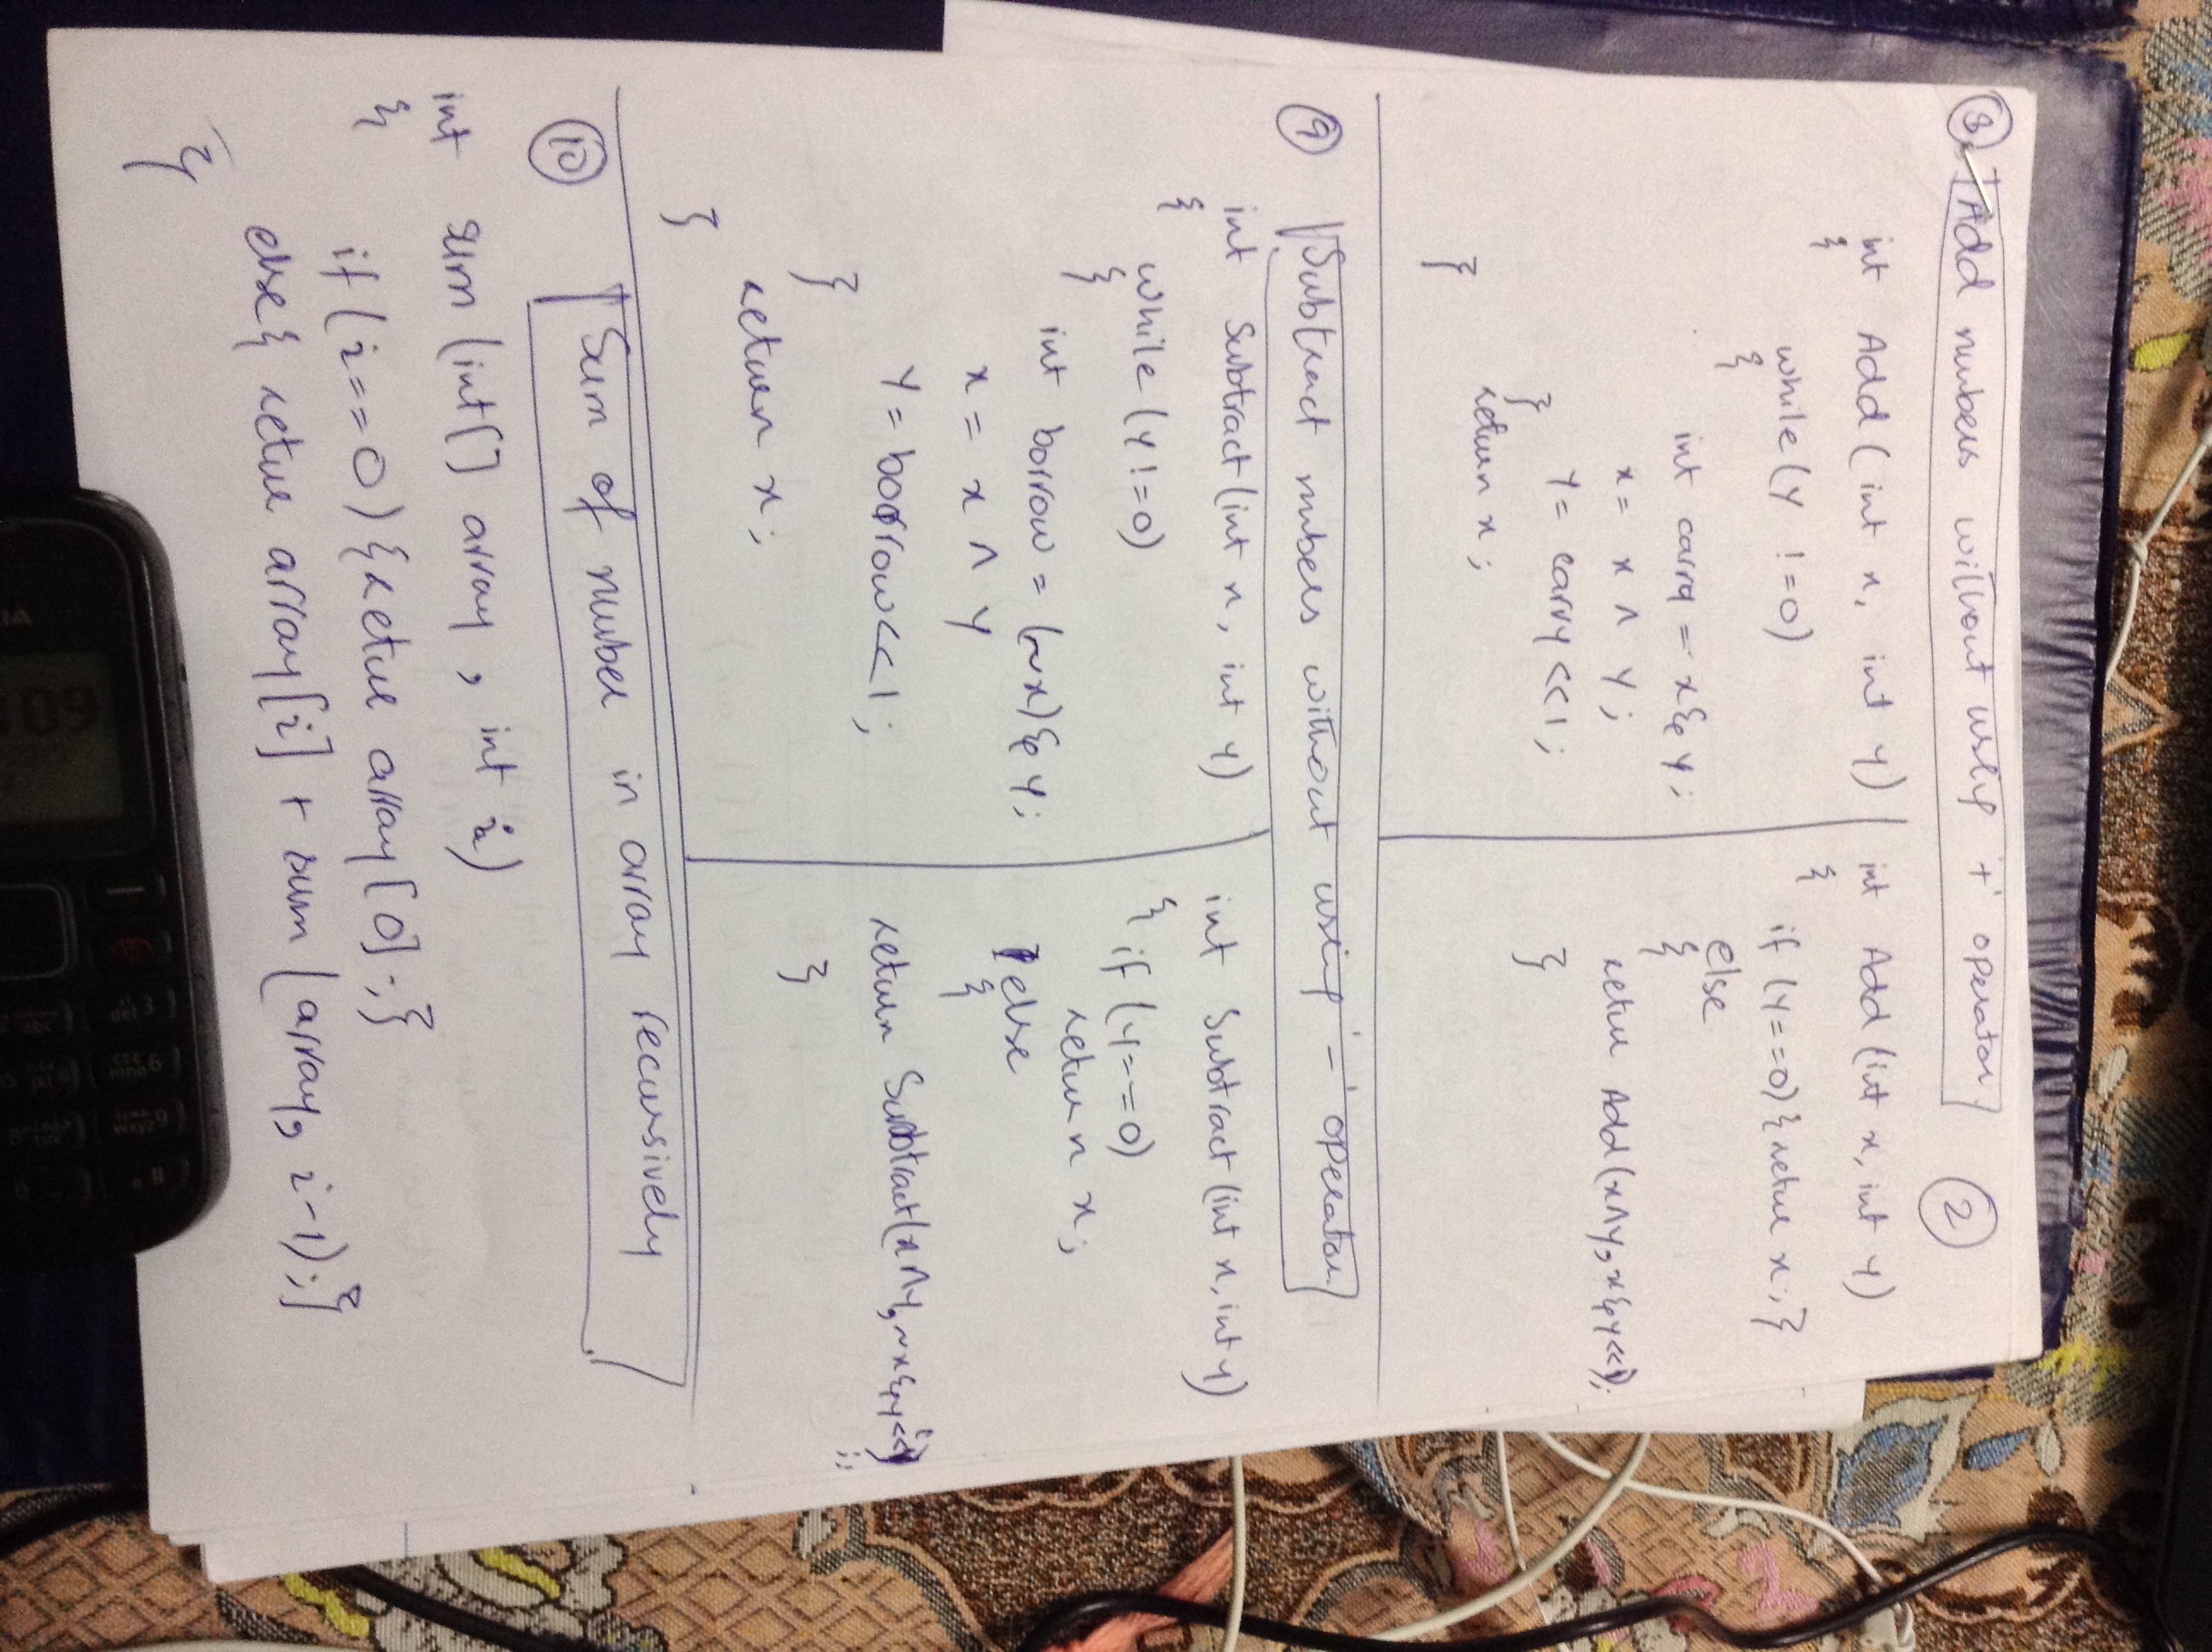 8 Add nubers without using '+' operator.
2
int Add ( int x, int y)
{
while(y !=0)
{
int carry = x & y;
x = x ^ y;
y = carry <<1;
}
return x;
}
int Add (int x, int y)
{
if (y==0) {retue x;}
else
{
retue Add(x^y, x&y<<1);
}
9 Subtract nubers without using '-' operator.
int Subtract (int x, int y)
{
while (y !=0)
{
int borrow = (~x) & y;
x = x ^ y
y = borrow<<1;
}
return x;
}
int Subtract (int x, int y)
{
if (y==0)
return x;
else
{
return Subtract(x^y, ~x&y<<1)
;;
}
10 Sum of nuber in array recursively
int sum (int[] array, int i)
{
if (i==0) {retue array[0];}
else{ retue array[i] + sum (array, i-1);}
}